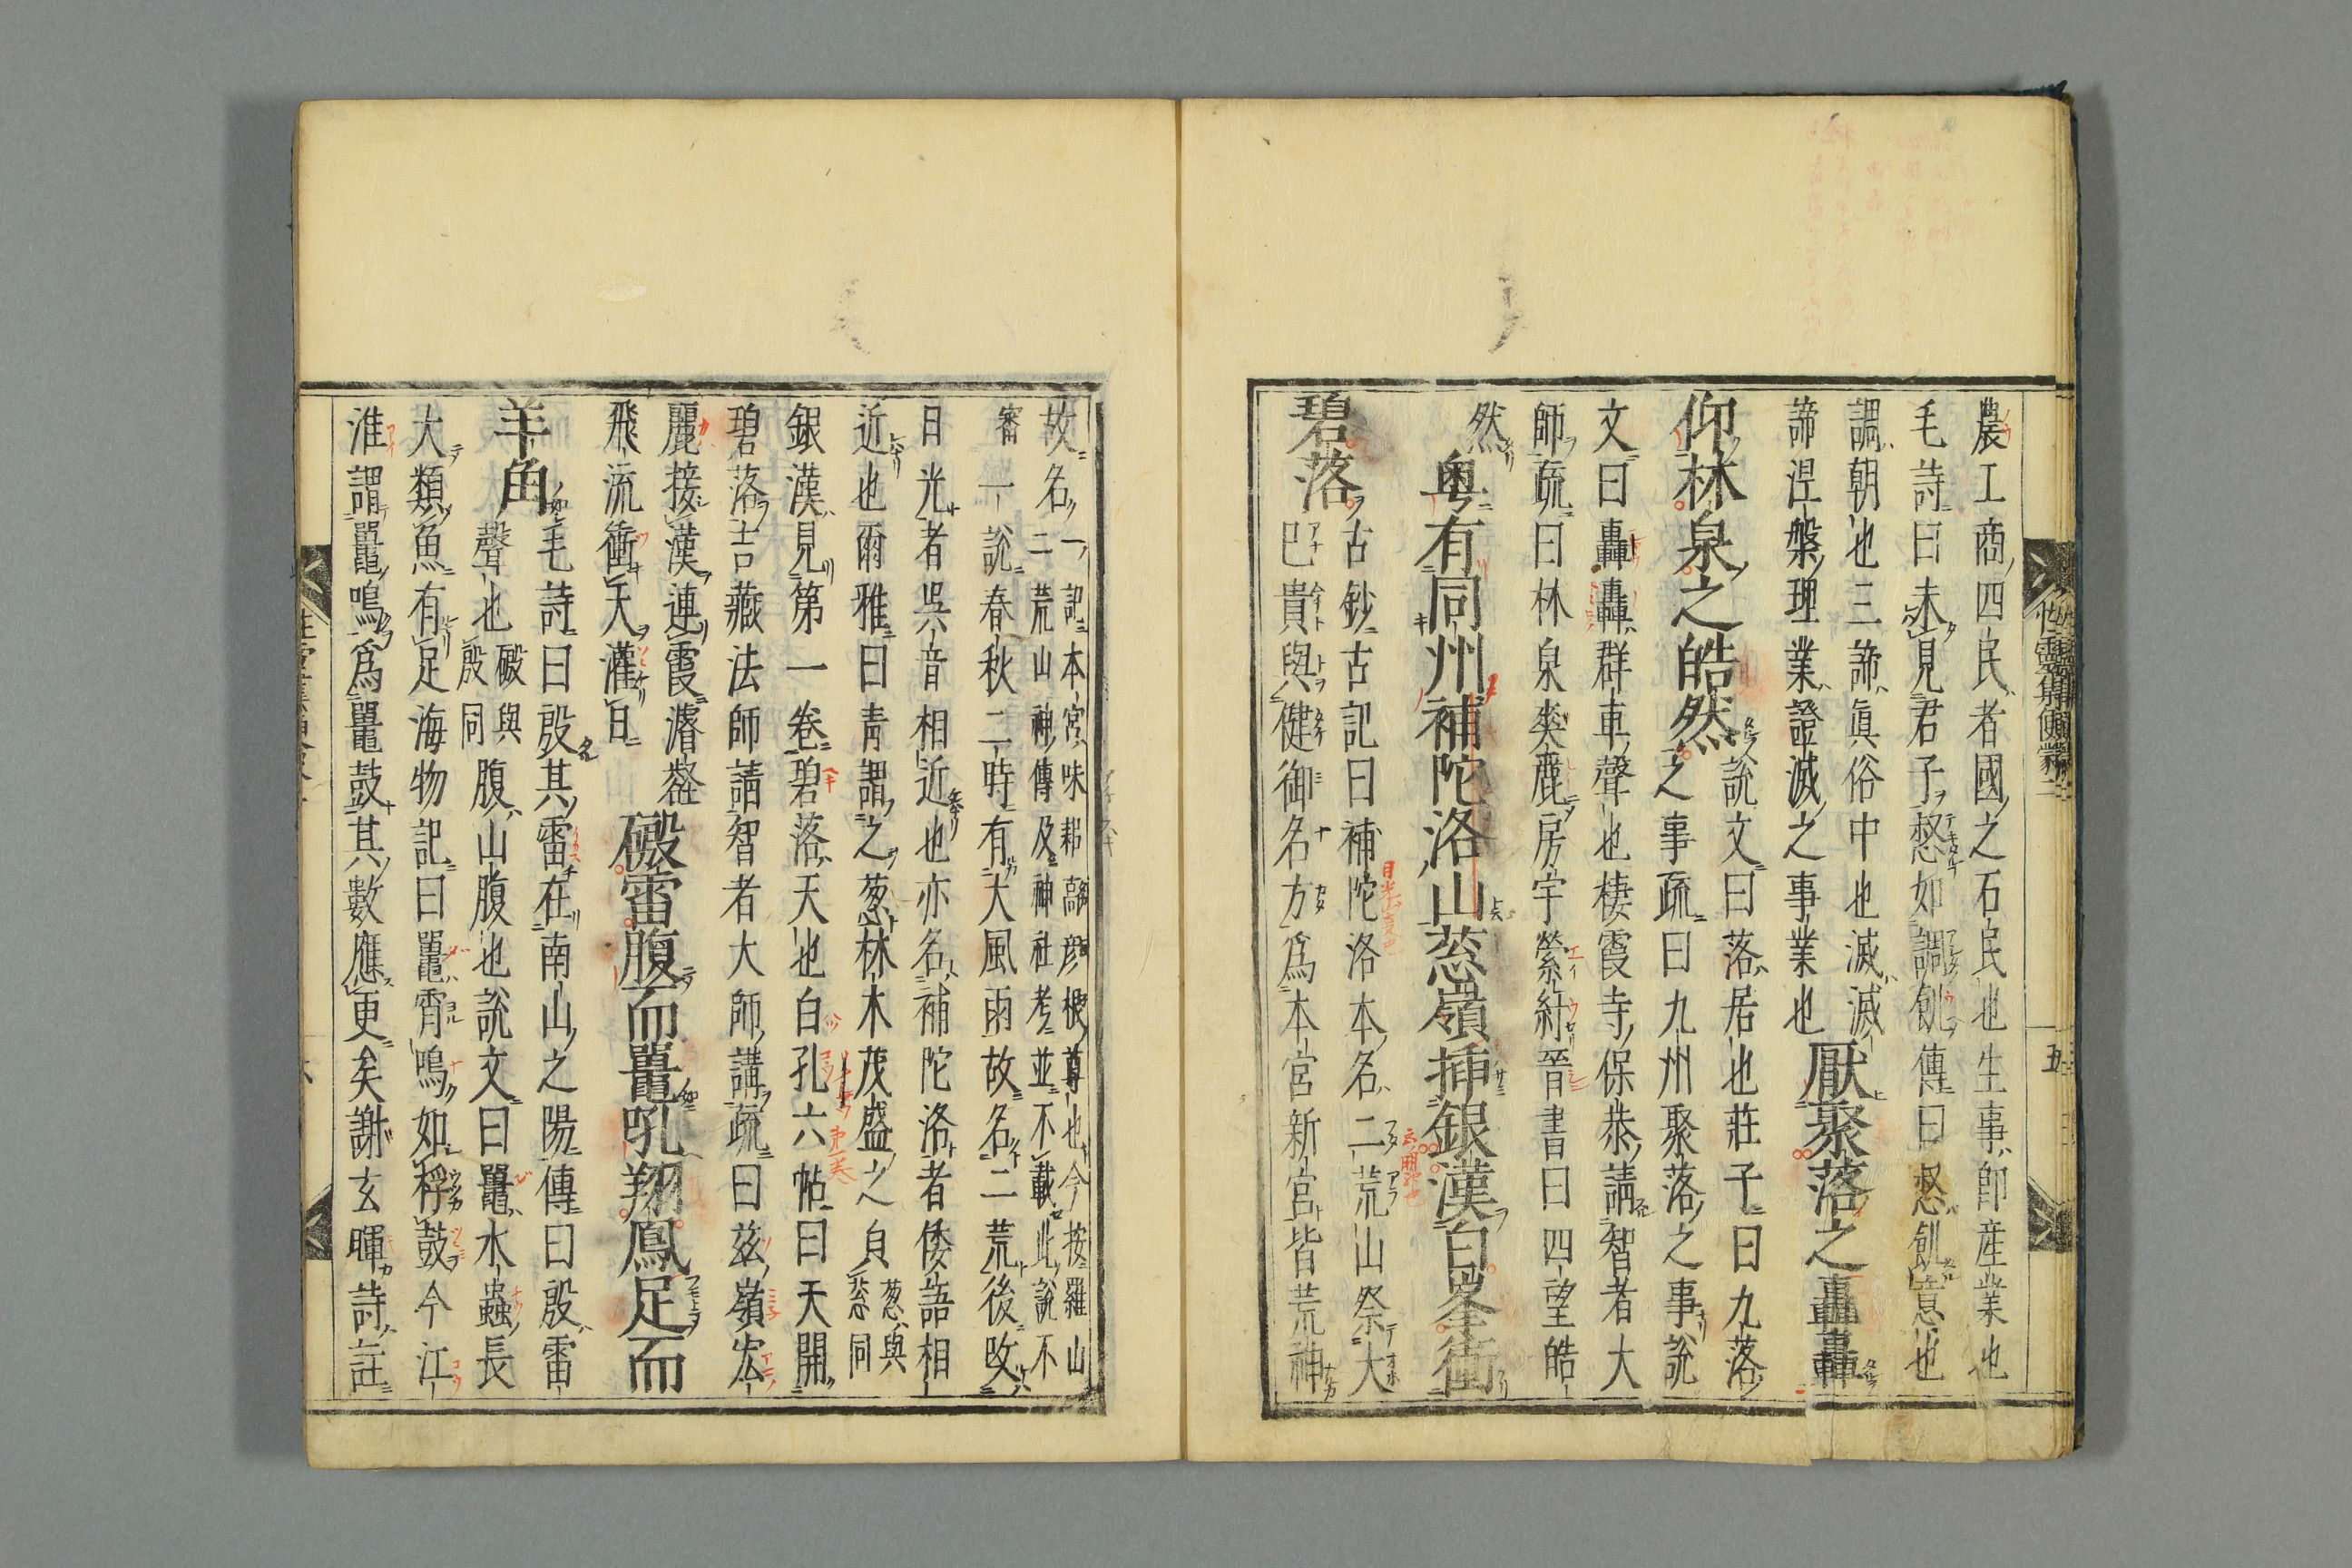 農工商四民者國之石民也生事即産業也
毛詩曰未見君子惄如調飢傳曰惄飢意也
調朝也三諦眞俗中也滅滅
諦涅槃理業證滅之事業也厭聚落之轟轟
説文曰落居也莊子曰九落
仰林泉之皓然之事疏曰九州聚落之事説
文曰轟轟群車聲也棲霞寺保恭請智者大
師疏曰林泉爽麗房宇縈紆晉書曰四望皓
然粤有同州補陀洛山葱嶺挿銀漢白峯衝
碧落古鈔古記曰補陀洛本名二荒山祭大
巳貴與健御名方爲本宮新宮皆荒神
故名一記本宮味耜高彦根尊也今按羅山
二荒山神傳及神社考並不載此説不
審一説春秋二時有大風雨故名二荒後改
日光者呉音相近也亦名補陀洛者倭語相
近也爾雅曰青謂之葱林木茂盛之皃葱與
葱同
銀漢見第一卷碧落天也白孔六帖曰天開
碧落吉藏法師請智者大師講疏曰茲嶺宏
麗接漢連霞濬壑
飛流衝天灌日礟雷腹而鼉吼翔鳳足而
羊角毛詩曰殷其雷在南山之陽傳曰殷雷
聲也礟與
殷同腹山腹也説文曰鼉水蟲長
大類魚有足海物記曰鼉宵鳴如桴鼓今江
淮謂鼉鳴爲鼉鼓其數應更矣謝玄暉詩註